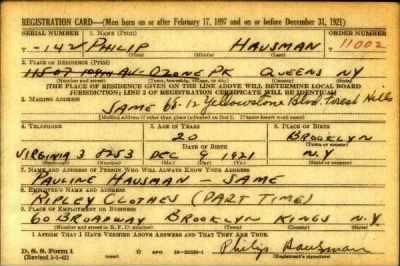 REGISTRATION CARD—(Men born on or after February 17, 1897 and on or before December 31, 1921)
SERIAL NUMBER 1. NAME (Print) ORDER NUMBER
T-142 PHILIP HAUSMAN 11002
(First) (Middle) (Last)
2. PLACE OF RESIDENCE (Print)
OZONE PK QUEENS NY
(Number and street) (Town, township, village, or city) (County) (State)
[THE PLACE OF RESIDENCE GIVEN ON THE LINE ABOVE WILL DETERMINE LOCAL BOARD
JURISDICTION; LINE 2 OF REGISTRATION CERTIFICATE WILL BE IDENTICAL]
3. MAILING ADDRESS
SAME 68-12 Yellowstone Blvd. Forest Hills
[Mailing address if other than place indicated on line 2. If same insert word same]
4. TELEPHONE 5. AGE IN YEARS 6. PLACE OF BIRTH
20 BROOKLYN
DATE OF BIRTH (Town or county)
VIRGINIA 3 8253 DEC 9 1921 N.Y.
(Exchange) (Number) (Mo.) (Day) (Yr.) (State or country)
7. NAME AND ADDRESS OF PERSON WHO WILL ALWAYS KNOW YOUR ADDRESS
PAULINE HAUSMAN - SAME
8. EMPLOYER'S NAME AND ADDRESS
RIPLEY CLOTHES (PART TIME)
9. PLACE OF EMPLOYMENT OR BUSINESS
60 BROADWAY BROOKLYN KINGS N.Y.
(Number and street or R. F. D. number) (Town) (County) (State)
I AFFIRM THAT I HAVE VERIFIED ABOVE ANSWERS AND THAT THEY ARE TRUE.
D. S. S. Form 1
(Revised 1-1-42) (over) GPO Philip Hausman
(Registrant's signature)